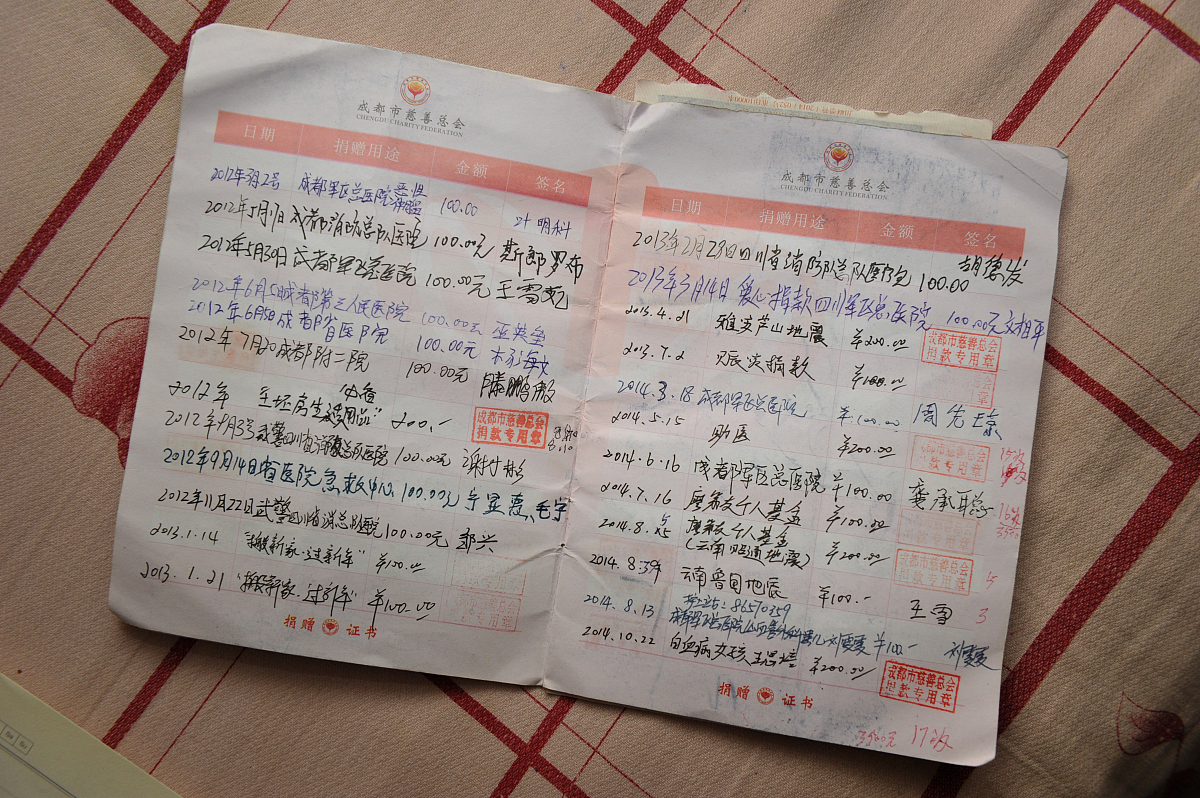 成都市慈善总会
CHENGDU CHARITY FEDERATION
日期 捐赠用途 金额 签名
2012年3月2号 成都军区总医院 100.00 叶明科
2012年5月1日 成都消防总队医院 100.00元 斯郎罗布
2012年5月30日 成都军区总医院 100.00元 王雪
2012年6月5日 成都第三人民医院 100.00元 巫英
2012年6月5日 成都省医院 100.00元
2012年7月20 成都附二院 100.00元 鹏
2012年 生活用品" 200.-
成都市慈善总会
捐款专用章
2012年9月3号 武警四川省消防总队医院 100.00元 谢竹彬
2012年9月14日 省医院急救中心 100.00元
2012年11月22日 武警四川省消总队医院 100.00元 郭兴
2013.1.14 "搬新家·过新年" ¥100.00
2013.1.21 "搬新家·过新年" ¥100.00
捐赠 证书
成都市慈善总会
CHENGDU CHARITY FEDERATION
日期 捐赠用途 金额 签名
2013年2月28日 四川省消防部总队医院 100.00 胡德发
2013年3月14日 爱心捐款四川军区总医院 100.00元 文相平
2013.4.21 雅安芦山地震 ¥200.00
成都市慈善总会
捐款专用章
2013.7.2 赈灾捐款 ¥100.00
2014.3.18 成都军区总医院 ¥100.00 周先琼
2014.5.15 助医 ¥200.00
2014.6.16 成都军区总医院 ¥100.00 龚承聪
2014.7.16 千人基金 ¥100.00
2014.8.5 千人基金
(云南昭通地震) ¥200.00
成都市慈善总会
捐款专用章
2014.8. 云南鲁甸地震 ¥100.- 王雪
86570359
2014.8.13 成都军区总医院 刘雯雯 ¥100- 刘雯雯
2014.10.22 白血病女孩王思 ¥200.00
成都市慈善总会
捐款专用章
捐赠 证书
17次